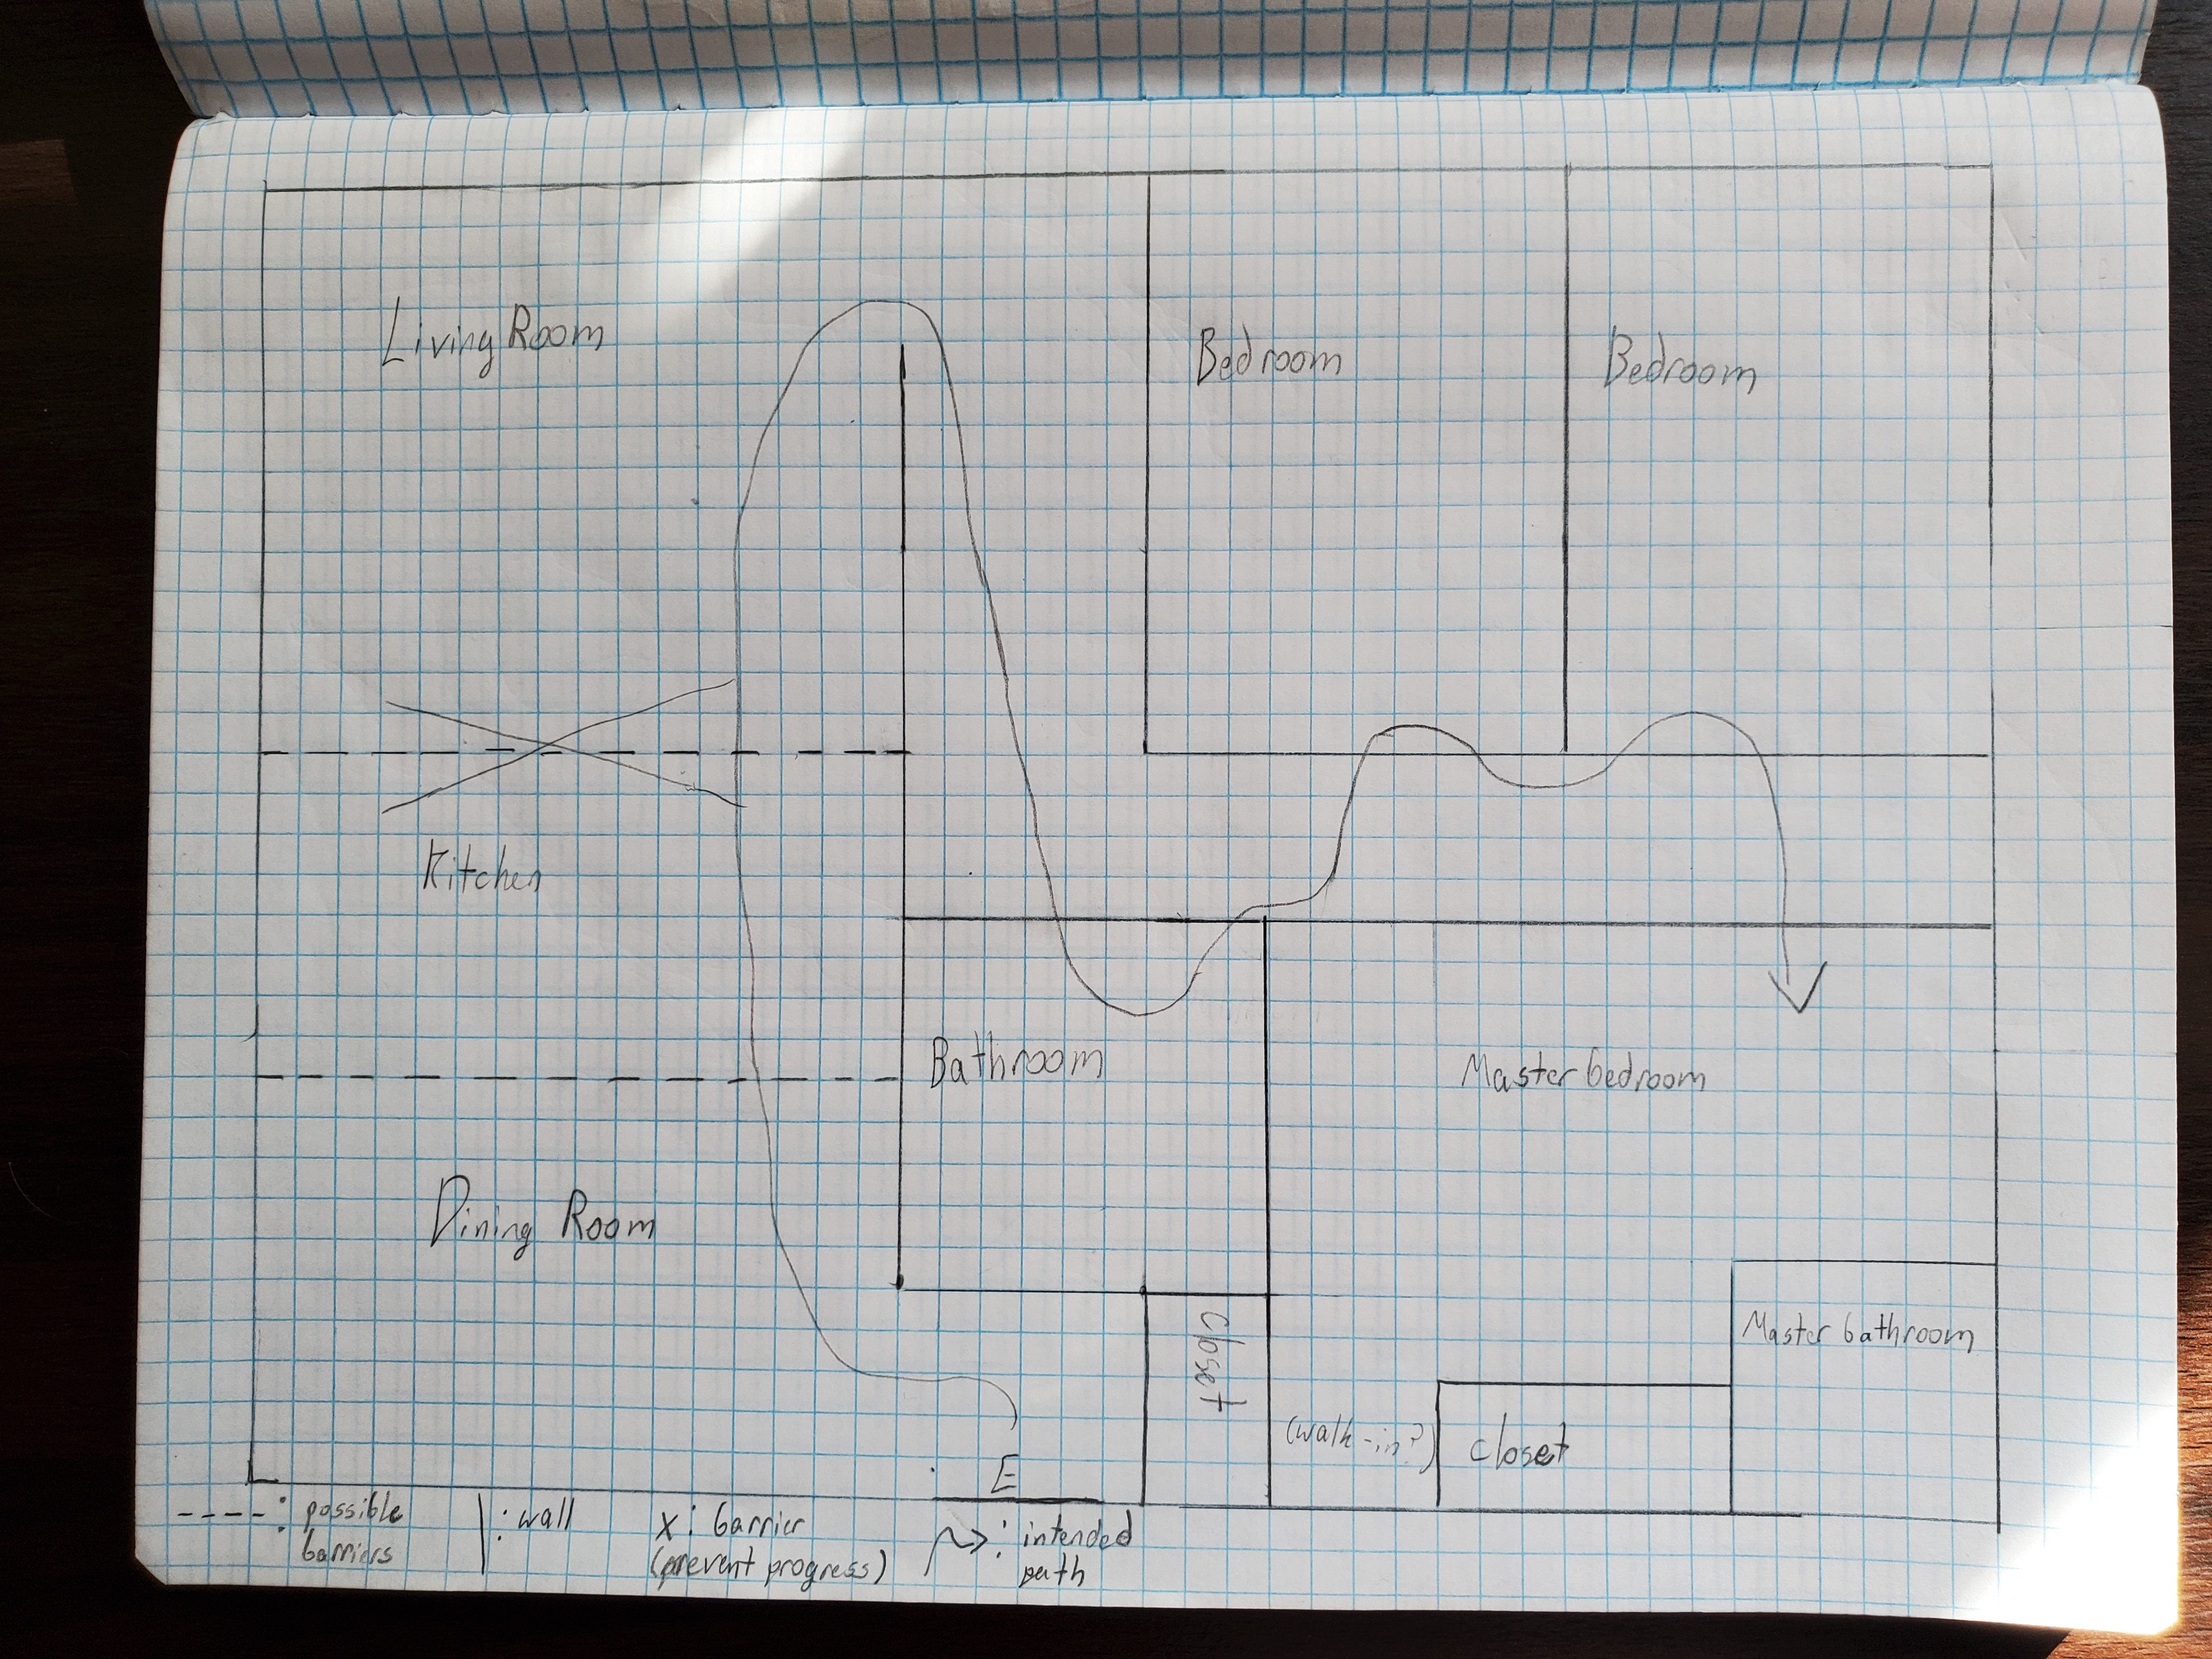 Living Room
Bedroom
Bedroom
Kitchen
Bathroom
Master bedroom
Dining Room
closet
Master bathroom
(walk-in?)
closet
E
----: possible
barriers
|: wall
X: barrier
(prevent progress)
: intended
path